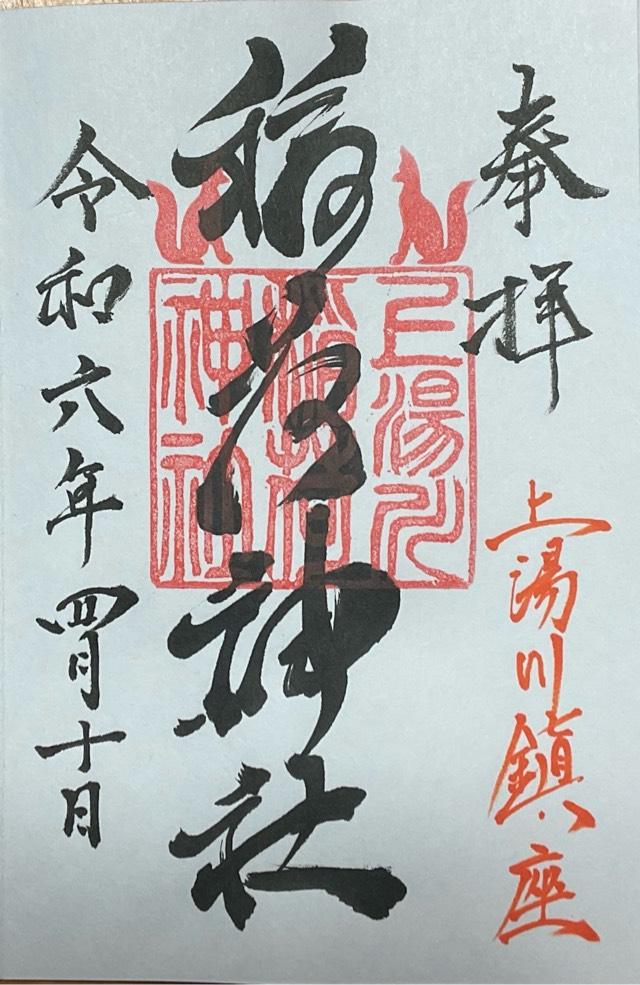 奉拝
上湯川鎮座
稲荷神社
上湯川
稲荷
神社
令和六年四月十日